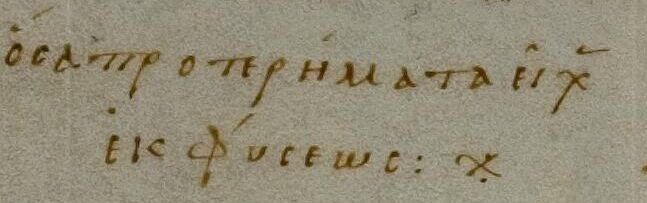 ὅσα προτερήματα εἶχ
ἐκ φύσεως: ※